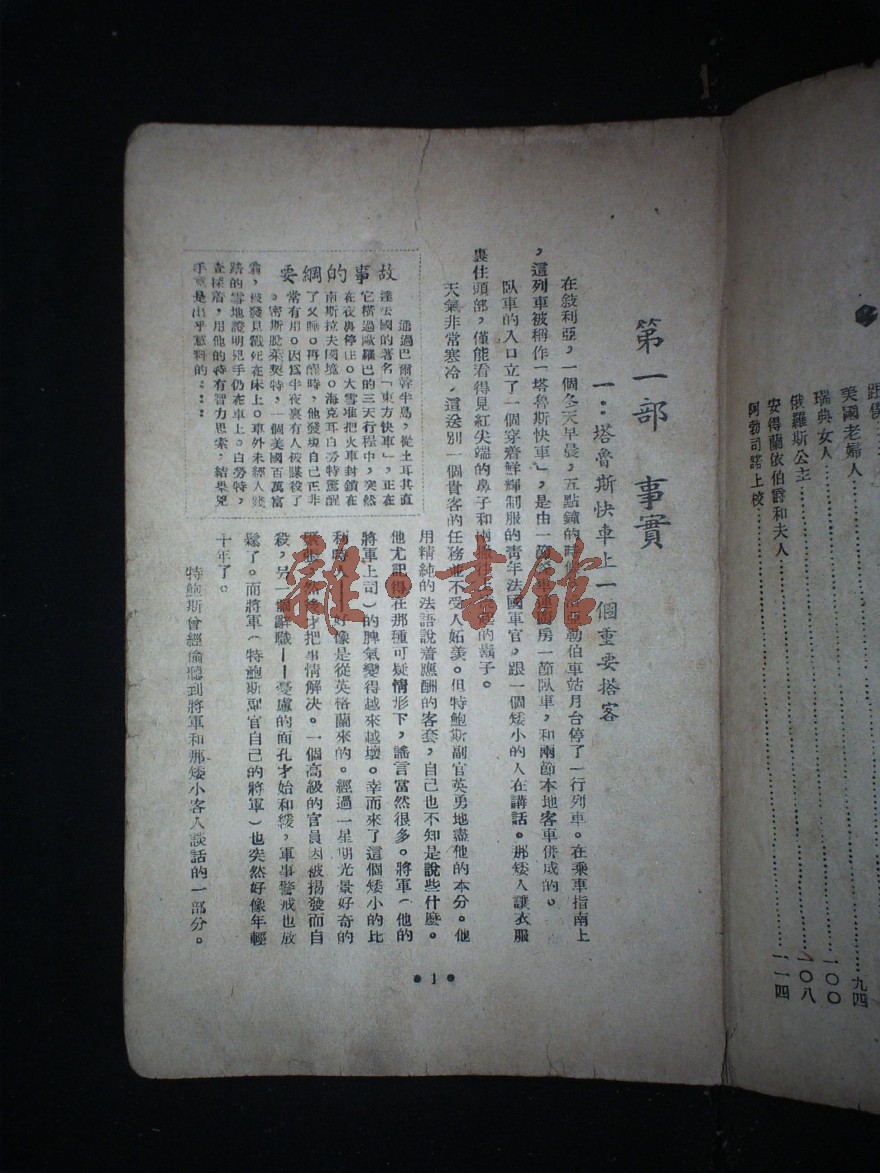 跟僕
美國老婦人……九四
瑞典女人……一〇〇
俄羅斯公主……一〇八
安得蘭依伯爵和夫人
阿勃司諾上校……一一四
第一部 事實
一：塔魯斯快車上一個重要搭客
在敍利亞，一個冬天早晨，五點鐘的時候，勒伯車站月台停了一行列車。在乘車指南上
，這列車被稱作「塔魯斯快車」，是由一節房一節臥車，和兩節本地客車併成的。
臥車的入口立了一個穿着鮮輝制服的靑年法國軍官，跟一個矮小的人在講話。那矮人讓衣服
裹住頭部，僅能看得見紅尖端的鼻子和兩的鬍子。
天氣非常寒冷，這送別一個貴客的任務並不受人妬羨。但特鮑斯副官英勇地盡他的本分。他
用精純的法語說着應酬的客套，自己也不知是說些什麼。
他尤記得在那種可疑情形下，謠言當然很多。將軍（他的
將軍上司）的脾氣變得越來越壞。幸而來了這個矮小的比
利時人——好像是從英格蘭來的。經過一星期光景好奇的
然後才把事情解决。一個高級的官員因被揭發而自
殺，另一個辭職——憂慮的面孔才始和緩，軍事警戒也放
鬆了。而將軍（特鮑斯副官自己的將軍）也突然好像年輕
十年了。
特鮑斯曾經偷聽到將軍和那矮小客人談話的一部分。
故事的綱要
通過巴爾幹半島，從土耳其直
達法國的著名「東方快車」，正在
它橫過歐羅巴的三天行程中，突然
在夜裏停住。大雪堆把火車封鎖在
南斯拉夫國境。海克耳白勞特驚醒
了又睡。再醒時，他發現自己正非
常有用。因爲半夜裏有人被謀殺了
。密斯脫萊契特，一個美國百萬富
翁，被發見戳死在床上。車外未經人踐
踏的雪地證明兇手仍在車上。白勞特，
查探着，用他的特有智力思索，結果兇
手竟是出乎意料的：：：
●1●
雜·書館